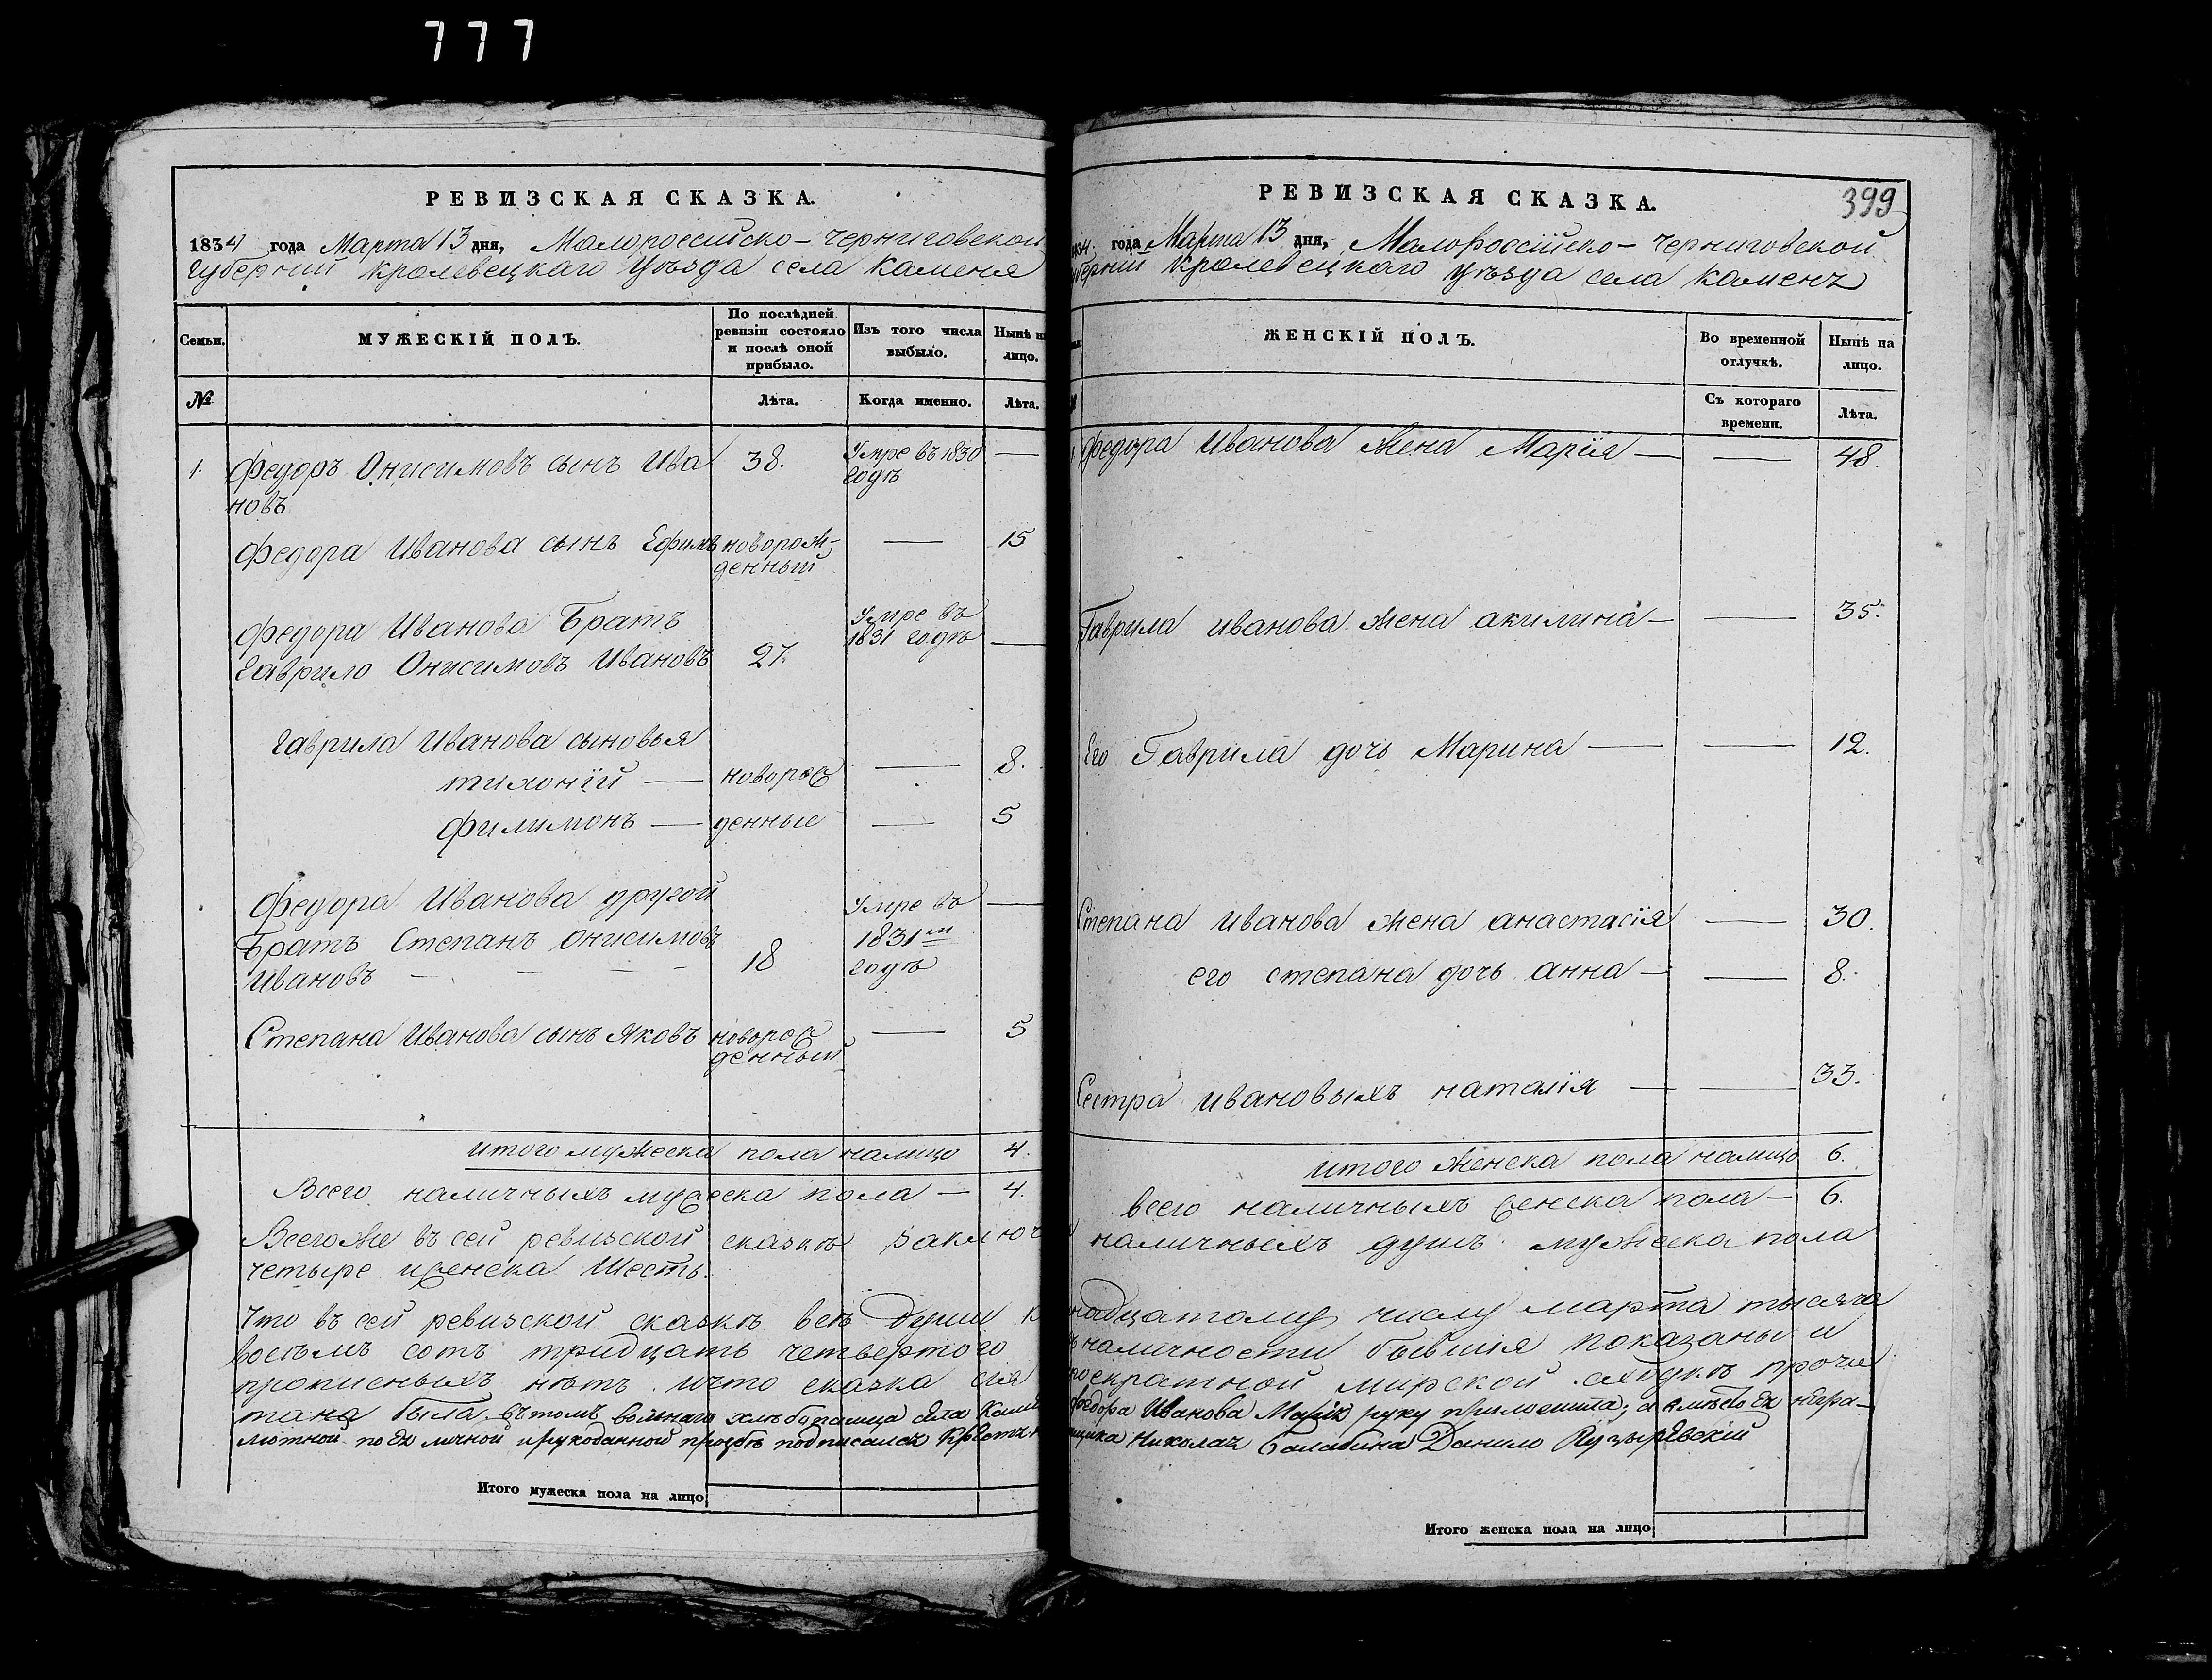 777
РЕВИЗСКАЯ СКАЗКА.
1834 года Марта 13 дня, Малороссийско-Черниговской
Губернии Кролевецкаго Уѣзда села Каменя
Семьи.
МУЖЕСКІЙ ПОЛЪ.
По послѣдней ревизіи состояло и послѣ оной прибыло.
Изъ того числа выбыло.
Нынѣ на лицо.
№
Лѣта.
Когда именно.
Лѣта.
1. Федоръ Онисимовъ сынъ Ива 38. Умре въ 1830 —
новъ годѣ
Федора Иванова сынъ Ефимъ новорож- — 15
денный
Федора Иванова Братъ Умре въ
Гаврило Онисимовъ Ивановъ 27. 1831 годѣ —
Гаврила Иванова сыновья
тихоній — новорож — 8.
Филимонъ — денные — 5
Федора Иванова другой Умре въ —
Братъ Степанъ Онисимовъ 18 1831м
Ивановъ — — — — годѣ
Степана Иванова сынъ Яковъ новорож — 5
денный
итого мужеска пола налицо 4.
Всего наличныхъ мужеска пола — 4.
Всегоже въ сей ревизской сказкѣ заключ
четыре иженска Шесть.
Что въ сей ревизской сказкѣ всѣ души к
восемъ сотъ тридцать четвертого
прописныхъ нѣтъ. ичто сказка сія
тана была. вътомъ вольнаго хлѣбопашца села
мотной по ея личной ирукоданной прозбѣ подписался
Итого мужеска пола на лицо
РЕВИЗСКАЯ СКАЗКА.
399
1834. года Марта 13 дня, Малороссійско-Черниговской
Губерніи Кролевецкаго Уѣзда села Каменъ
ЖЕНСКІЙ ПОЛЪ.
Во временной отлучкѣ.
Нынѣ на лицо.
Съ котораго времени.
Лѣта.
Федора Иванова жена Марія — — 48.
Гаврила иванова жена акилина — — 35.
Его Гаврила дочь Марина — — 12.
Степана иванова жена анастасія — 30.
его степана дочь анна — — 8.
Сестра ивановыхъ наталія — — 33.
итого женска пола налицо 6.
всего наличныхъ женска пола — 6.
наличныхъ душъ мужеска пола
надцатому числу марта тысяча
наличности бывшія показаны и
мирской сходкѣ прочи
Федора Иванова Марія руку приложила; а вмѣсто Ея негра-
Николая Балабина Данило Кузыревскій
Итого женска пола на лицо